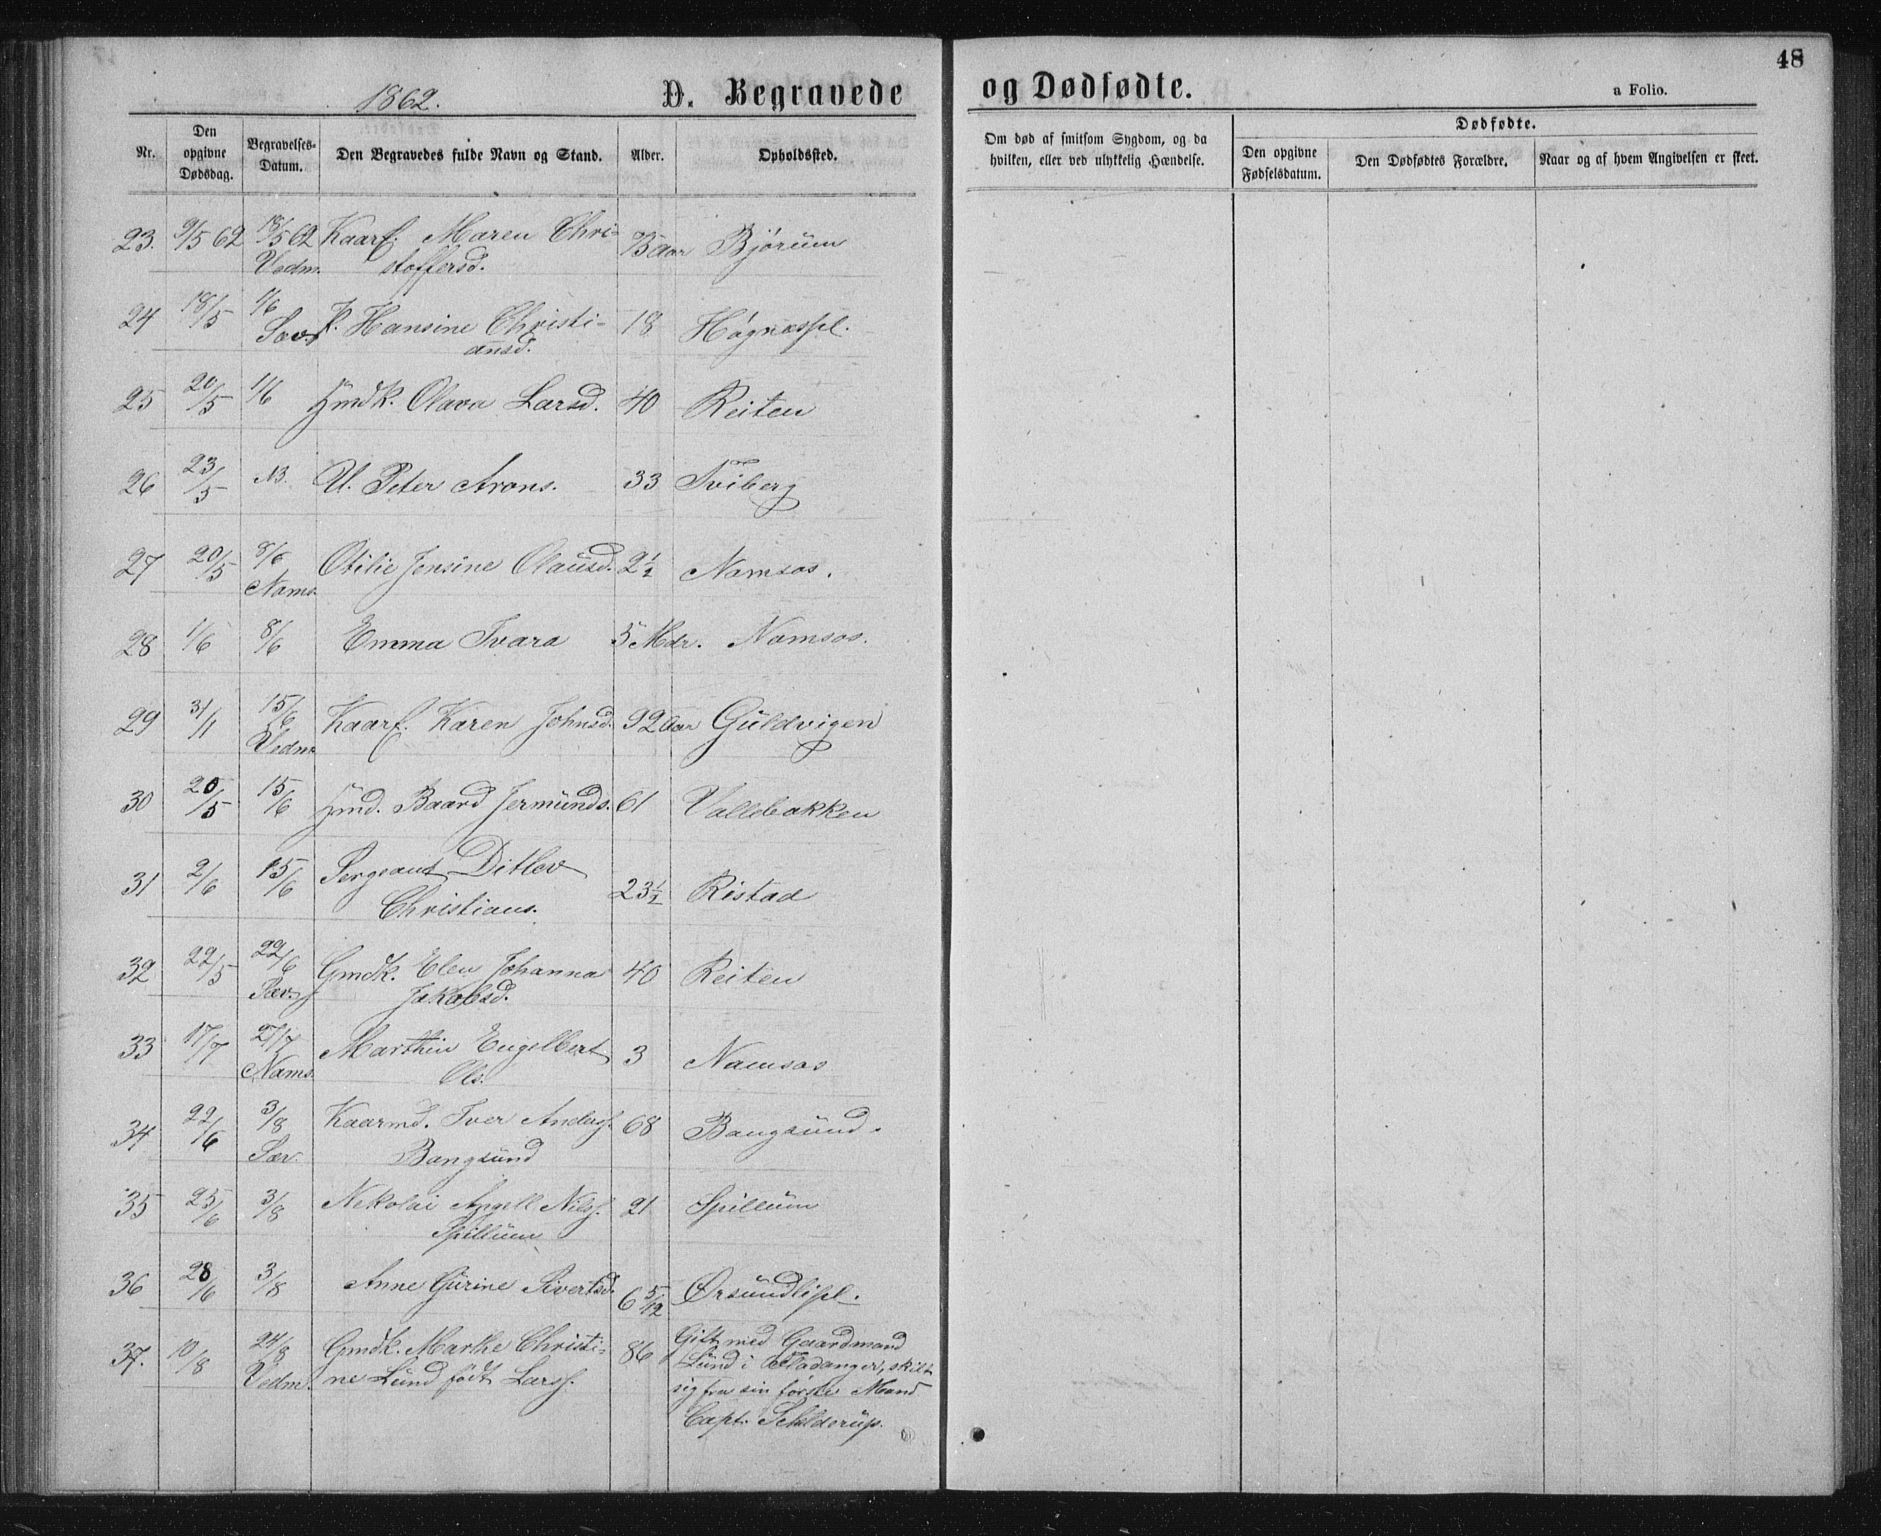 1862.
D. Begravede og Dødfødte.
48
a Folio.
Nr.
Den opgivne Dødsdag.
Begravelses-Datum.
Den Begravedes fulde Navn og Stand.
Alder.
Opholdssted.
Om død af smitsom Sygdom, og da
hvilken, eller ved ulykkelig Hændelse.
Dødfødte.
Den opgivne Fødselsdatum.
Den Dødfødtes Forældre.
Naar og af hvem Angivelsen er skeet.
23. 9/5 62 18/5 62 Kaarf. Maren Chri- 75 aar Bjørum
Vedm. stoffersd.
24 18/5 1/6 P. Hansine Christi- 18 Høgnæspl.
Sæv. ansd.
25 20/5 1/6 Jmdk. Olava Larsd. 40 Reiten
26 23/5 NB. U. Peter Arons. 33 Tviberg
27 20/5 8/6 Otilie Jensine Olausd. 2½ Namsos.
Nams.
28 1/6 8/6 Emma Tvara 5 Mdr. Namsos.
29 31/1 15/6 Kaarf. Karen Johnsd. 92 aar Guldvigen
Vedm.
30 20/5 15/6 Jmd. Baard Jermunds. 61 Vallebakken
31 2/6 15/6 Sergeant Ditlev
Christians. 23½ Ristad
32 22/5 22/6 Gmdk. Elen Johanna 40 Reiten
Sæv. Jakobsd.
33 17/7 27/7 Marthin Engelbert 3 Namsos
Nams. Ols.
34 22/6 3/8 Kaarmd. Iver Andersf. 68 Bangsund.
Sæv. Bangsund
35 25/6 3/8 Nekolai Angell Nilsf. 21 Spillum
Spillum
36 28/6 3/8 Anne Gurine Sivertsd. 6 5/12 Ørsundlipl.
37. 10/8 24/8 Gmdk. Marthe Christi- 86 Gift med Gaardmand
Vedm. ne Lund født Larsf. Lund i Fladanger, skilt
sig fra sin første Mand
Capt. Schelderup.